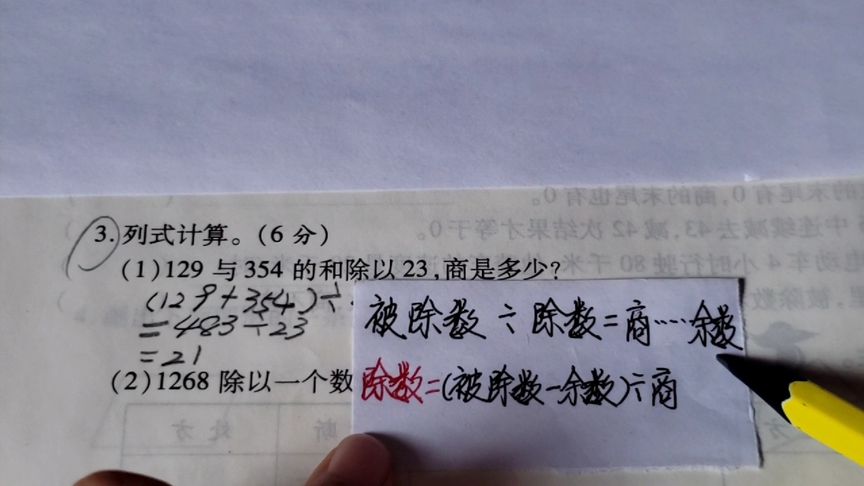 3. 列式计算。(6 分)
(1)129 与 354 的和除以 23,商是多少?
(129+354)÷
=483÷23
=21
(2)1268 除以一个数
被除数÷除数=商……余数
除数=(被除数-余数)÷商